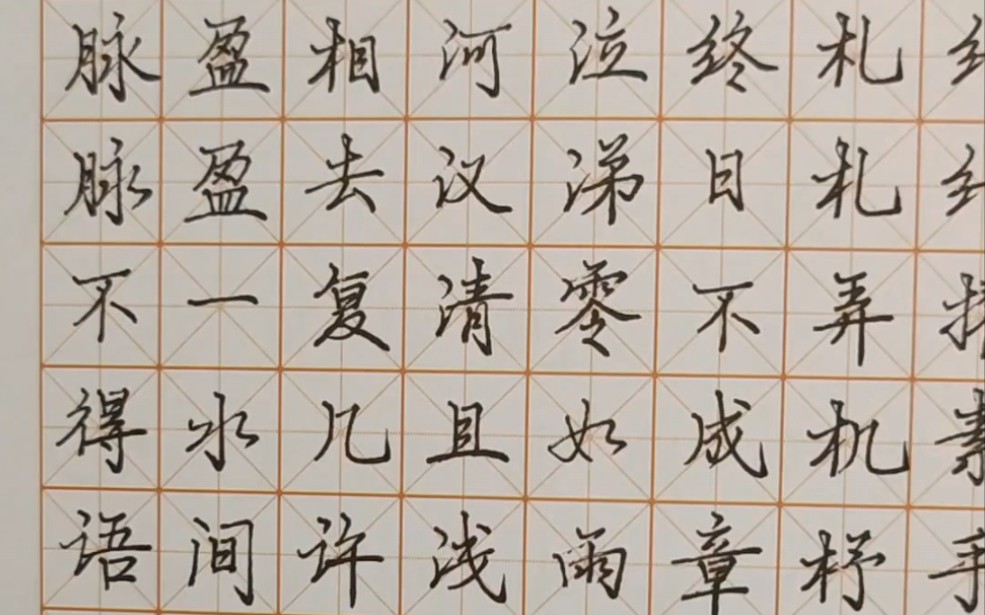 札札弄机杼
终日不成章
泣涕零如雨
河汉清且浅
相去复几许
盈盈一水间
脉脉不得语